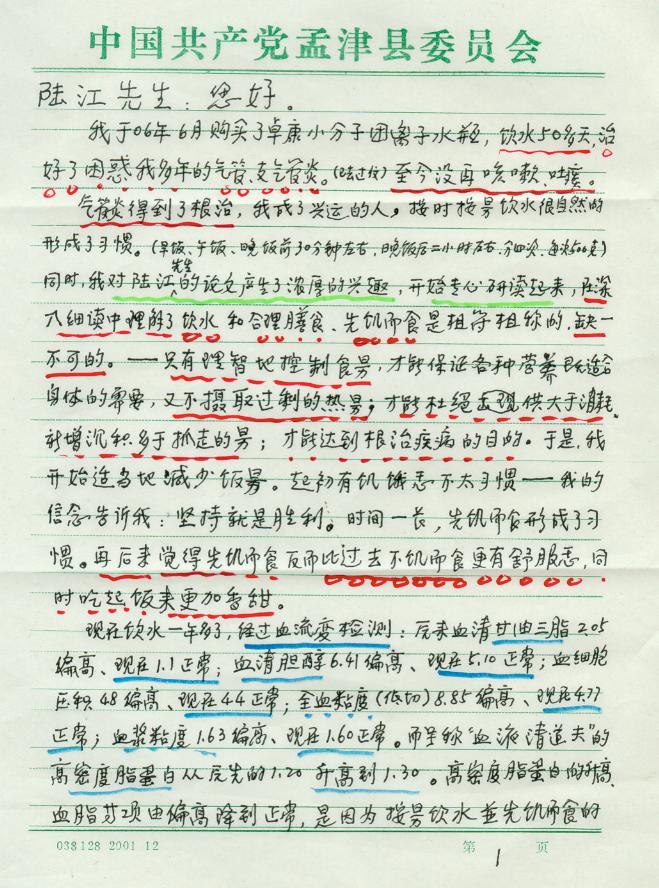 中国共产党孟津县委员会
陆江先生：您好。
我于06年6月购买了卓康小分子团离子水瓶，饮水50多天，治
好了困惑我多年的气管、支气管炎。(哮过行) 至今没再咳嗽、吐痰。
气管炎得到了根治，我成了兴运的人，按时按量饮水很自然的
形成了习惯。(早饭、午饭、晚饭前30分钟左右，晚饭后二小时左右，分四次，每次500克)
同时，我对陆江先生的论文产生了浓厚的兴趣，开始专心研读起来，在深
入细读中理解了饮水和合理膳食、先饥而食是相符相称的，缺一
不可的。——只有理智地控制食量，才能保证各种营养既适合
自体的需要，又不摄取过剩的热量；才能杜绝出现供大于消耗、
新增沉积多于抓走的量；才能达到根治疾病的目的。于是，我
开始适当地减少饭量。起初有饥饿感不太习惯——我的
信念告诉我：坚持就是胜利。时间一长，先饥而食形成了习
惯。再后来觉得先饥而食反而比过去不饥而食更有舒服感，同
时吃起饭来更加香甜。
现在饮水一年多了，经过血流变检测：原来血清甘油三脂2.05
偏高、现在1.1正常；血清胆醇6.41偏高、现在5.10正常；血细胞
压积48偏高、现在44正常；全血粘度(低切)8.85偏高、现在4.77
正常；血浆粘度1.63偏高、现在1.60正常。而坐称“血液清道夫”的
高密度脂蛋白从原先的1.20升高到1.30。高密度脂蛋白的升高、
血脂芬项由偏高降到正常，是因为按量饮水並先饥而食的
038128 2001 12
第 1 页